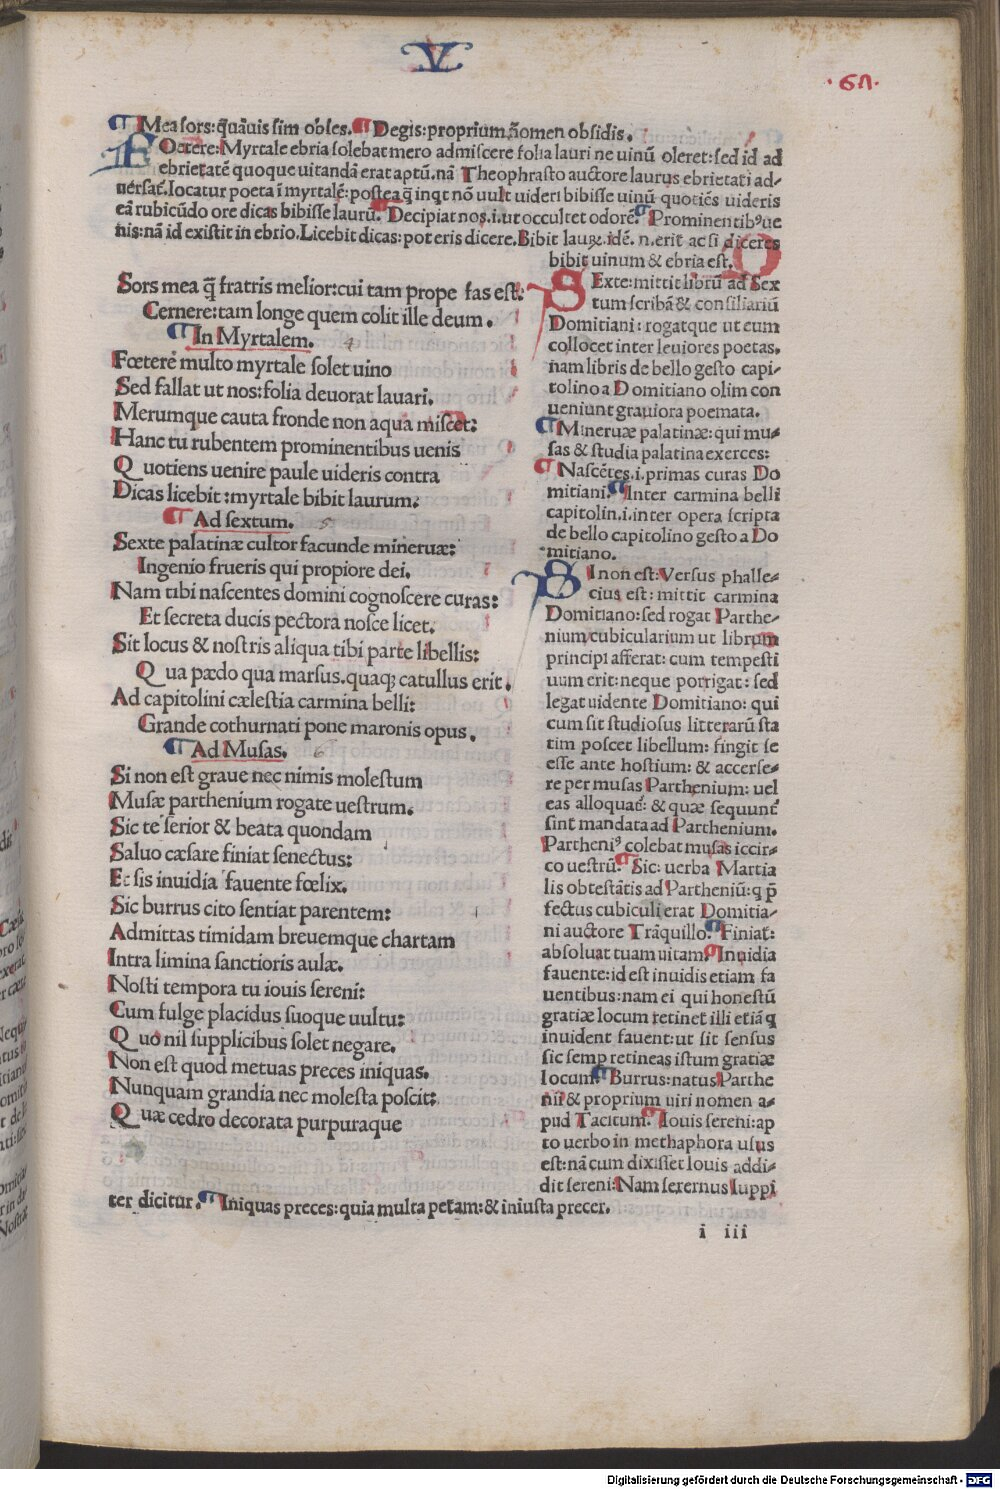 V
·67·
Mea sors: q̄uāuis sim obses. Degis: proprium nomen obsidis.
FOetere: Myrtale ebria solebat mero admiscere folia lauri ne uinū oleret: sed id ad
ebrietatē quoque uitandā erat aptū. nā Theophrasto auctore laurus ebrietati ad-
uersat̄. Iocatur poeta ī myrtalē: postea q̄ inqt nō uult uideri bibisse uinū quotiēs uideris
eā rubicūdo ore dicas bibisse laurū. Decipiat nos .i. ut occultet odorē. Prominentibꝰ ue
nis: nā id existit in ebrio. Licebit dicas: poteris dicere. Bibit lauꝝ. idē .n. erit ac si diceres
bibit uinum & ebria est.
Sors mea q̄ fratris melior: cui tam prope fas est:
Cernere: tam longe quem colit ille deum.
In Myrtalem. 4
Fœterē multo myrtale solet uino
Sed fallat ut nos: folia deuorat lauari.
Merumque cauta fronde non aqua miscet:
Hanc tu rubentem prominentibus uenis
Quotiens uenire paule uideris contra
Dicas licebit: myrtale bibit laurum.
Ad sextum. 5
Sexte palatinæ cultor facunde mineruæ:
Ingenio frueris qui propiore dei.
Nam tibi nascentes domini cognoscere curas:
Et secreta ducis pectora nosce licet.
Sit locus & nostris aliqua tibi parte libellis:
Qua pædo qua marsus. quaqꝫ catullus erit.
Ad capitolini cælestia carmina belli:
Grande cothurnati pone maronis opus.
Ad Musas. 6
Si non est graue nec nimis molestum
Musæ parthenium rogate uestrum.
Sic te serior & beata quondam
Saluo cæsare finiat senectus:
Et sis inuidia fauente fœlix.
Sic burrus cito sentiat parentem:
Admittas timidam breuemque chartam
Intra limina sanctioris aulæ.
Nosti tempora tu iouis sereni:
Cum fulge placidus suoque uultu:
Quo nil supplicibus solet negare.
Non est quod metuas preces iniquas.
Nunquam grandia nec molesta poscit:
Quæ cedro decorata purpuraque
SExte: mittit librū ad Sex
tum scribā & consiliariū
Domitiani: rogatque ut eum
collocet inter leuiores poetas.
nam libris de bello gesto capi-
tolino a Domitiano olim con
ueniunt grauiora poemata.
Mineruæ palatinæ: qui mu-
sas & studia palatina exerces:
Nascētes .i. primas curas Do
mitiani. Inter carmina belli
capitolin. i. inter opera scripta
de bello capitolino gesto a Do
mitiano.
SI non est: Versus phalle-
cius est: mittit carmina
Domitiano: sed rogat Parthe-
nium cubicularium ut librum
principi afferat: cum tempesti
uum erit: neque porrigat: sed
legat uidente Domitiano: qui
cum sit studiosus litterarū sta
tim poscet libellum: fingit se
esse ante hostium: & accerse-
re per musas Parthenium: uel
eas alloquat̄: & quæ sequunt̄
sint mandata ad Parthenium.
Partheniꝰ colebat musas iccir-
co uestrū. Sic: uerba Martia
lis obtestātis ad Partheniū: q p̄
fectus cubiculi erat Domitia-
ni auctore Trāquillo. Finiat:
absoluat tuam uitam. Inuidia
fauente: id est inuidis etiam fa
uentibus: nam ei qui honestū
gratiæ locum retinet illi etiā q
inuident fauent: ut sit sensus
sic semp retineas istum gratiæ
locum. Burrus: natus Parthe
nii & proprium uiri nomen a-
pud Tacitum. Iouis sereni: ap
to uerbo in methaphora usus
est: nā cum dixisset Iouis addi-
dit sereni: Nam serernus Iuppi
ter dicitur. Iniquas preces: quia multa petam: & iniusta precer.
i iii
Digitalisierung gefördert durch die Deutsche Forschungsgemeinschaft - DFG